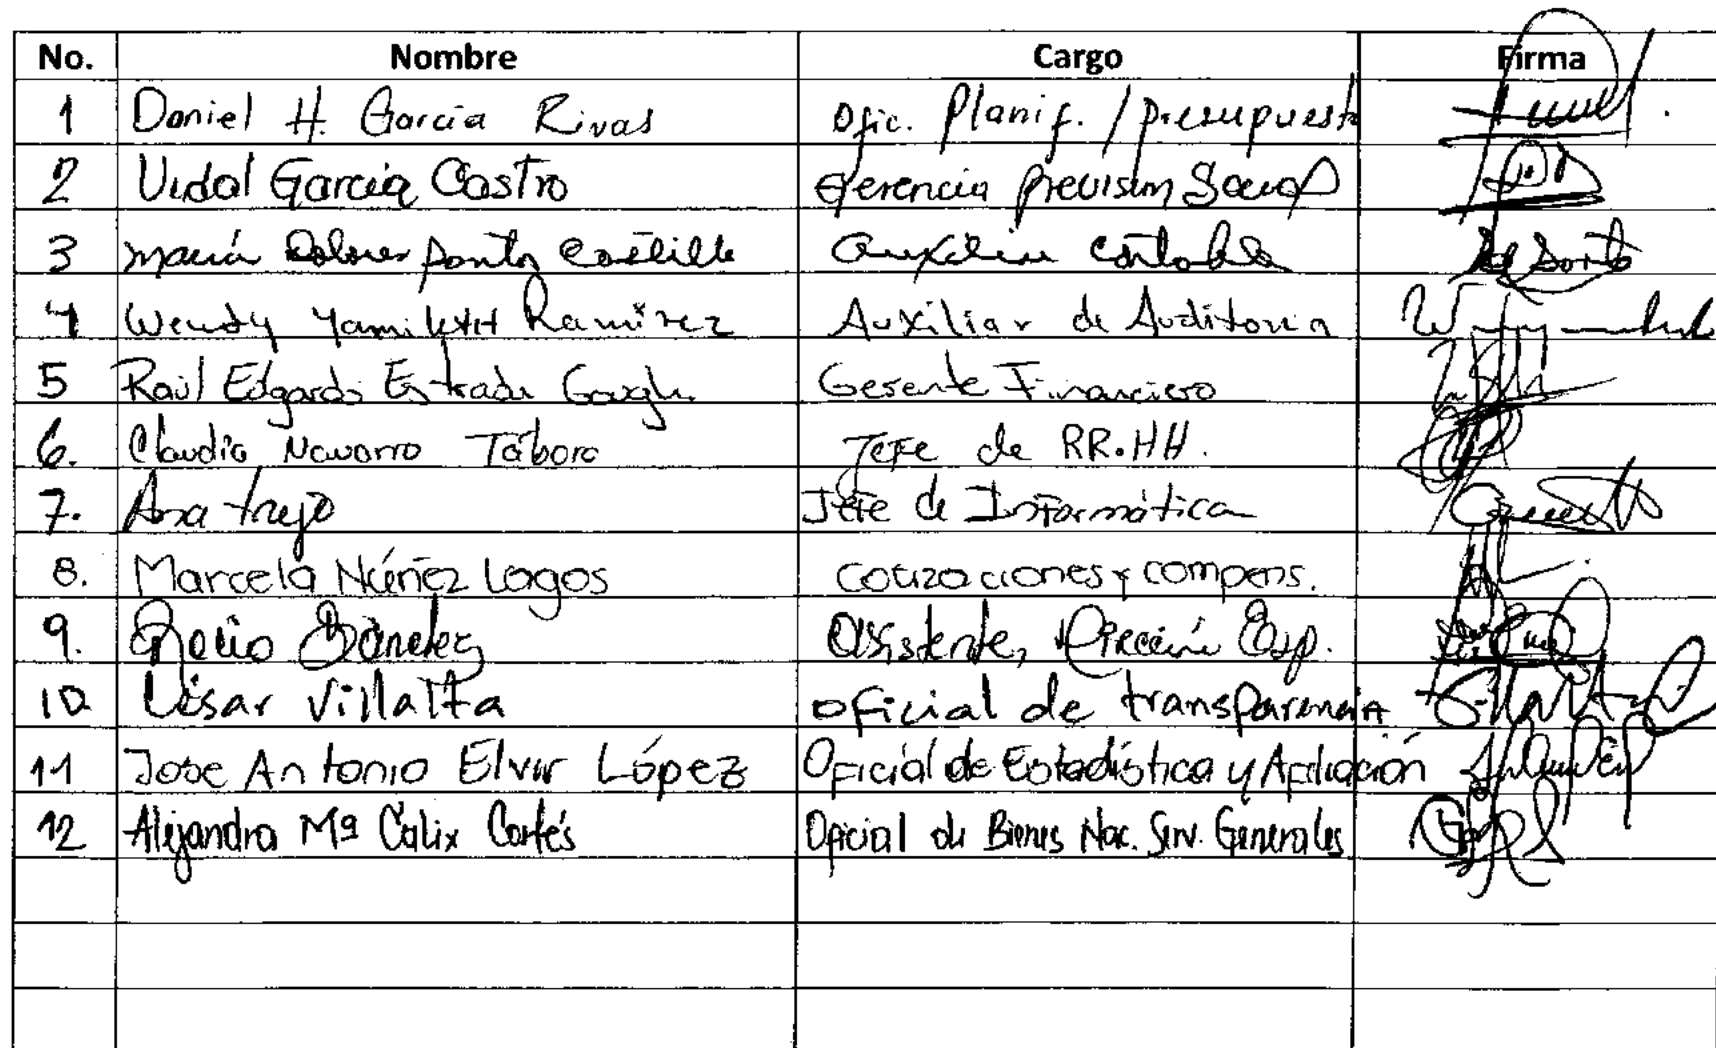 No. Nombre Cargo Firma
1 Daniel H. García Rivas Ofic. Planif. / Presupuesto
2 Vidal García Castro Gerencia Previsión Social
3 María Dolores Santos Castillo Auxiliar Contable
4 Wendy Yamileth Ramírez Auxiliar de Auditoria
5 Raúl Edgardo Estrada Gerente Financiero
6. Claudia Navarro Tábora Jefe de RR.HH.
7. Ana Trejo Jefe de Informática
8. Marcela Núñez Lagos Cotizaciones y compens.
9. Rocío Asistente, Dirección Esp.
10 César Villalta oficial de transparencia
11 Jose Antonio Elvir López Oficial de Estadística y Afiliación
12 Alejandra Mª Calix Cortés Oficial de Bienes Nac. Serv. Generales